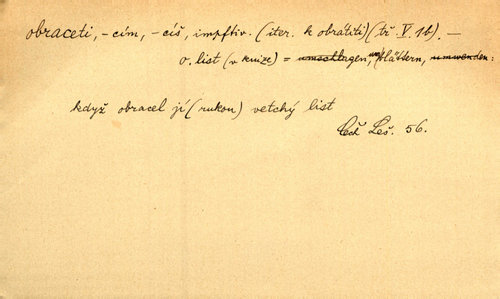 obraceti, -cím, -cíš, impftiv. (iter. k obrátiti) (tř. V. 1b). —
o. list (v knize) = umschlagen, umblättern, umwenden:
když obracel jí (rukou) vetchý list
Čech Leš. 56.